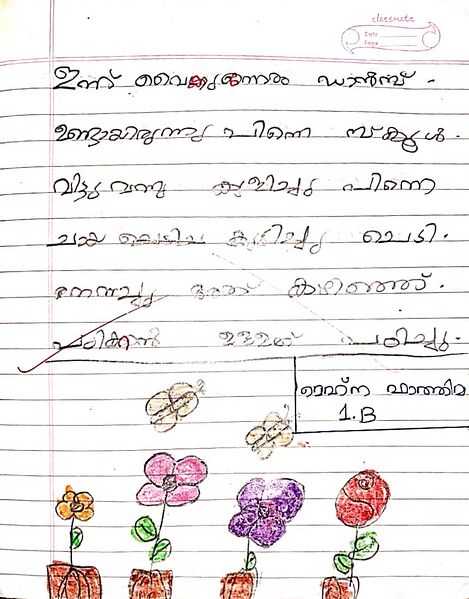 classmate
Date
Page
ഇന്ന് വൈകുന്നേരം ഡാൻസ്
ഉണ്ടായിരുന്നു പിന്നെ സ്ക്കൂൾ.
വിട്ടു വന്നു കുളിച്ചു പിന്നെ
ചായ കുടിച്ചു ചെടി.
നനച്ചു അത് കഴിഞ്ഞ്.
പഠിക്കാൻ ഉള്ളത് പഠിച്ചു.
റെഹ്ന ഫാത്തിമ
1.B